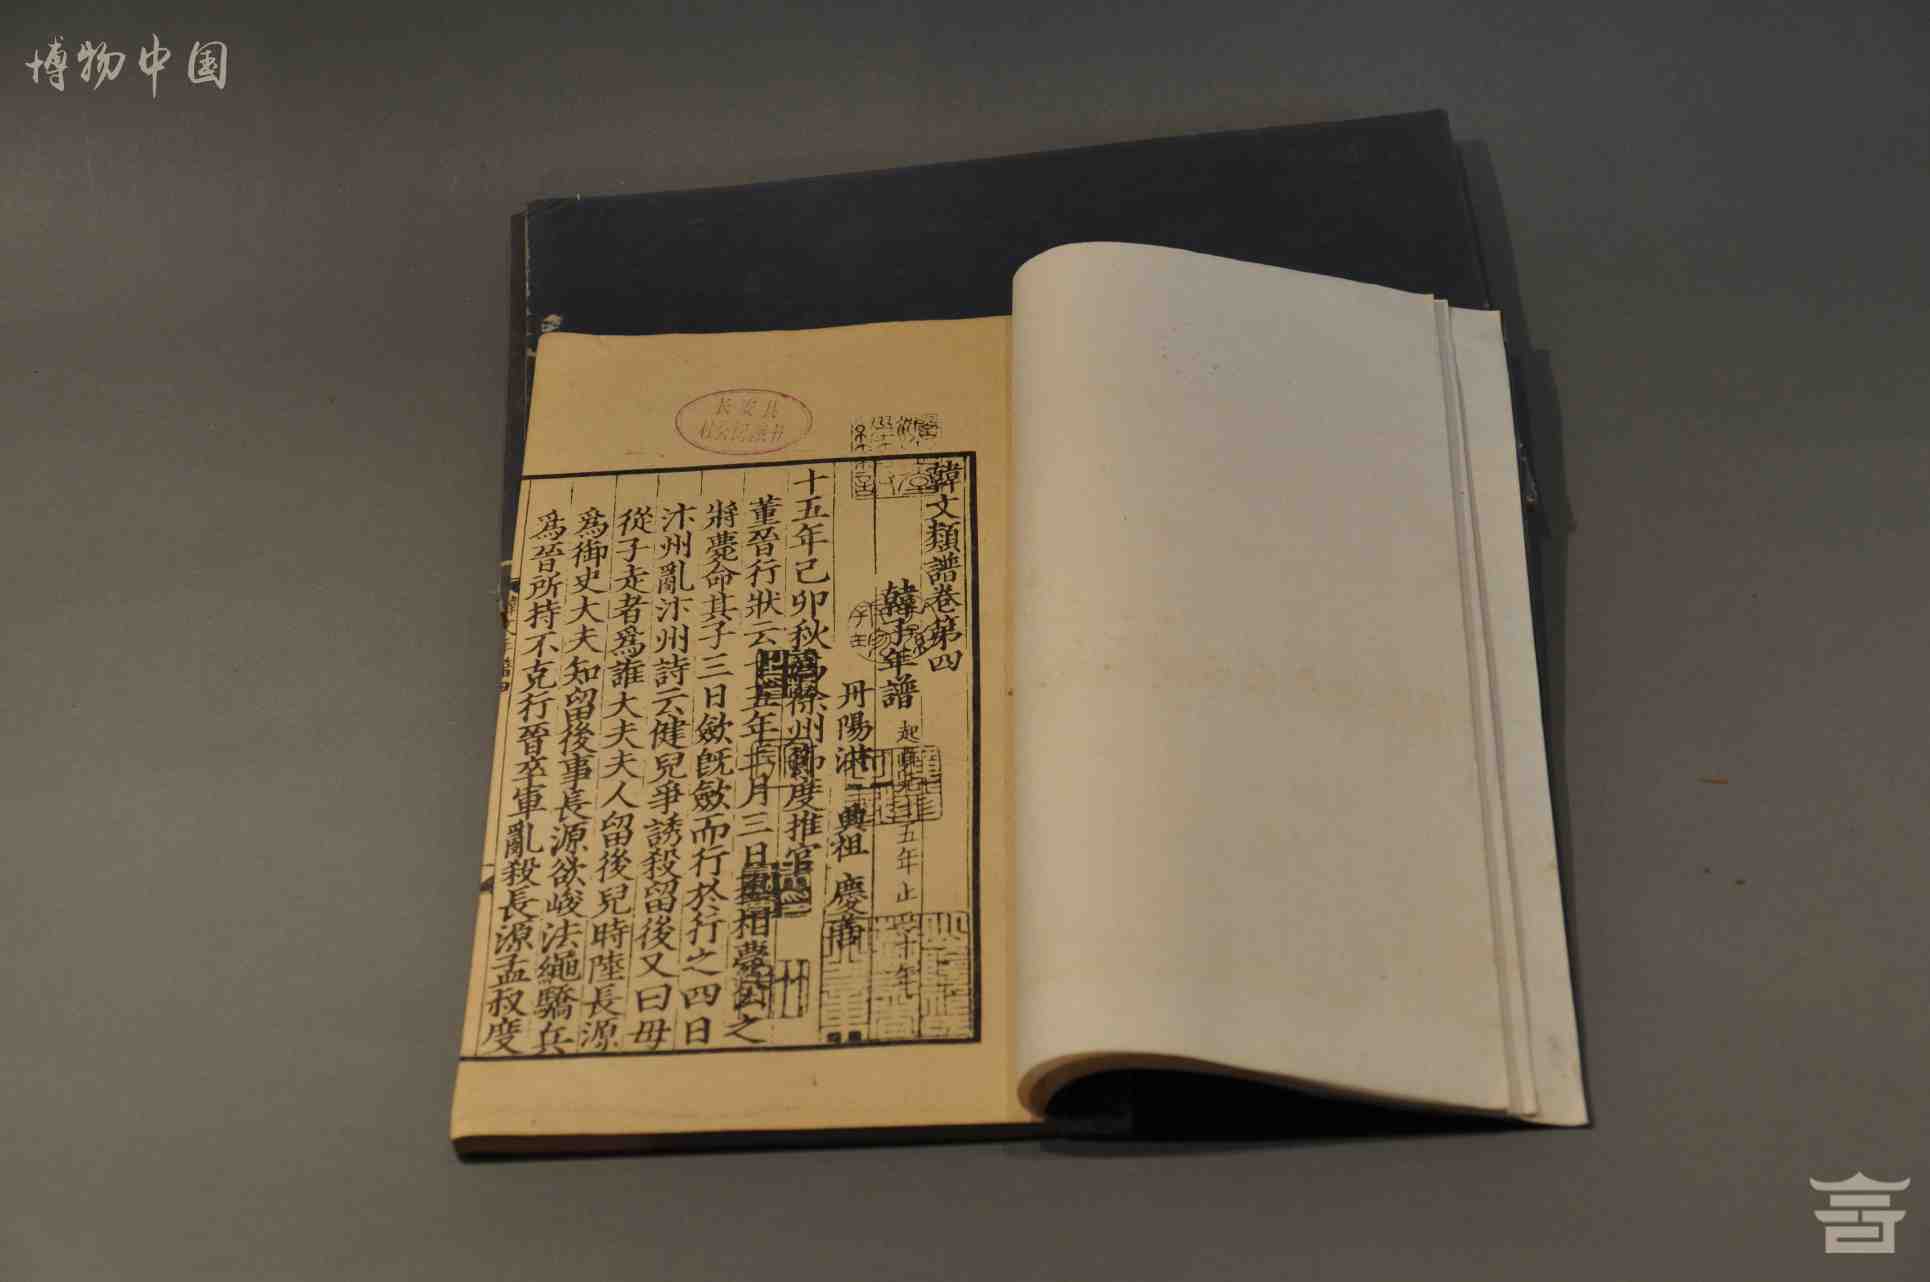 博物中国
韓文類譜卷第四
韓子年譜 起貞元十五年止
丹陽洪 興祖 慶善
十五年己卯秋爲徐州節度推官
董晉行狀云十五年二月三日丞相薨公之
將薨命其子三日斂旣斂而行於行之四日
汴州亂汴州詩云健兒爭誘殺留後又曰母
從子走者爲誰大夫夫人留後兒時陸長源
爲御史大夫知留後事長源欲峻法繩驕兵
爲晉所持不克行晉卒軍亂殺長源孟叔度